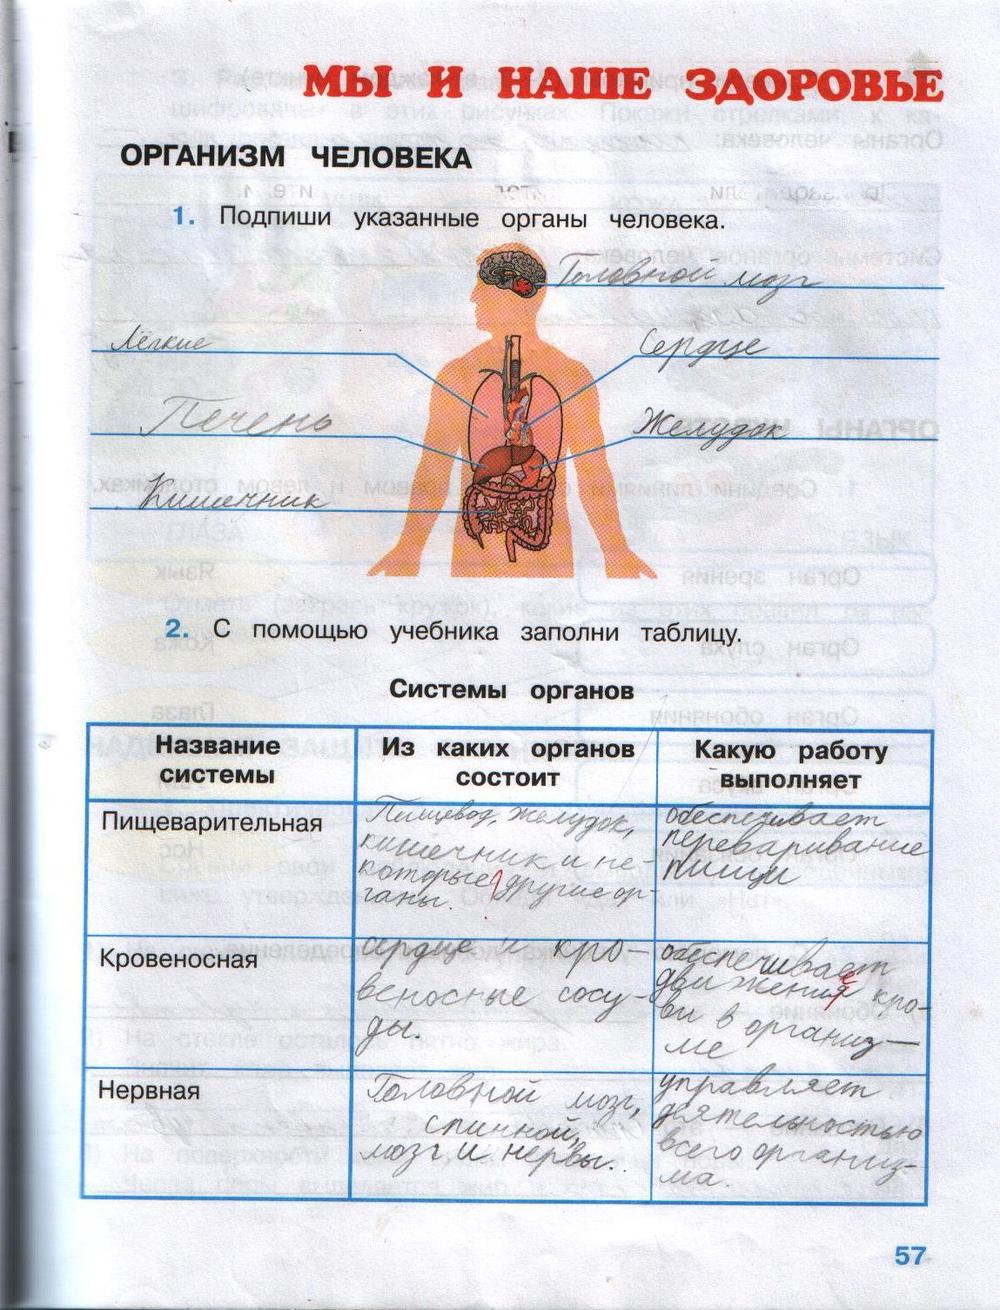 МЫ И НАШЕ ЗДОРОВЬЕ
ОРГАНИЗМ ЧЕЛОВЕКА
1. Подпиши указанные органы человека.
Головной мозг
Лёгкие
Сердце
Печень
Желудок
Кишечник
2. С помощью учебника заполни таблицу.
Системы органов
Название
системы
Из каких органов
состоит
Какую работу
выполняет
Пищеварительная
Пищевод, желудок,
кишечник и не-
которые другие ор-
ганы.
обеспечивает
переваривание
пищи
Кровеносная
сердце и кро-
веносные сосу-
ды.
обеспечивает
движение кро-
ви в организ-
ме
Нервная
Головной мозг,
спинной
мозг и нервы.
управляет
деятельностью
всего организ-
ма.
57